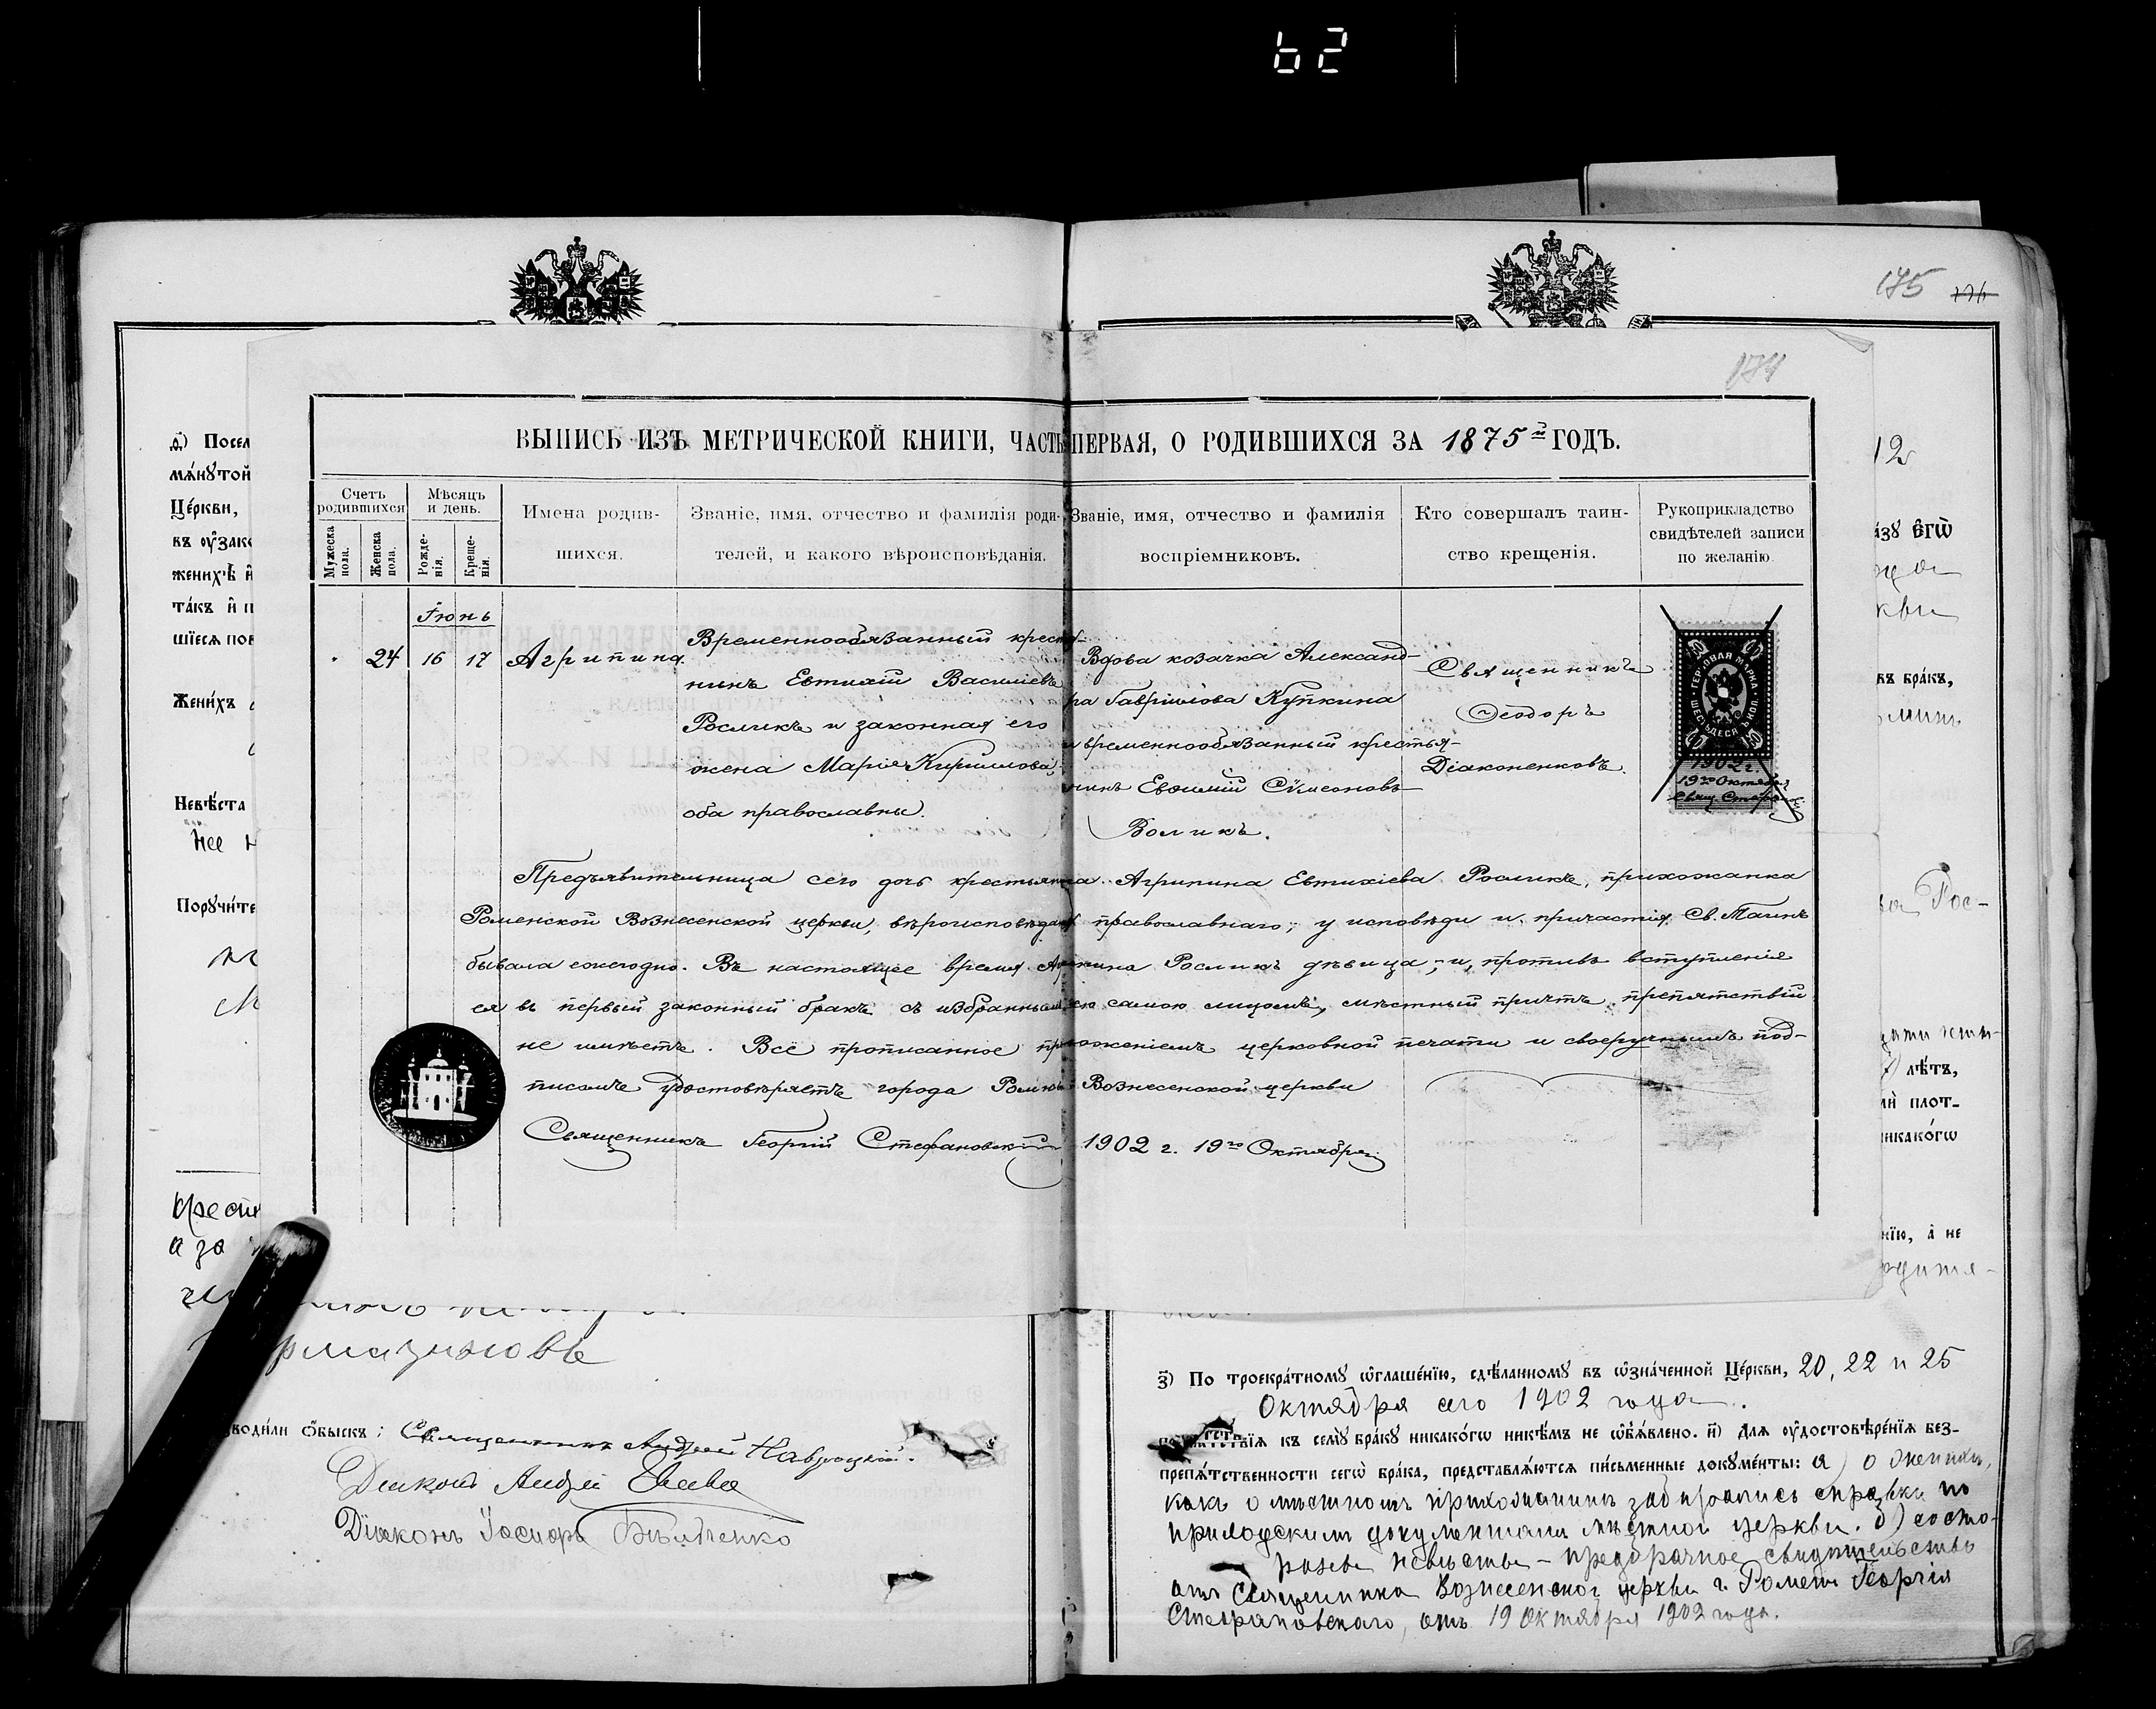 62
175
174
ВЫПИСЬ ИЗЪ МЕТРИЧЕСКОЙ КНИГИ, ЧАСТЬ ПЕРВАЯ, О РОДИВШИХСЯ ЗА 1875й ГОДЪ.
Счетъ родившихся
Мужеска пола.
Женска пола.
Мѣсяцъ и день.
Рожденія.
Крещенія.
Имена родившихся.
Званіе, имя, отчество и фамилія родителей, и какого вѣроисповѣданія.
Званіе, имя, отчество и фамилія воспріемниковъ.
Кто совершалъ таинство крещенія.
Рукоприкладство свидѣтелей записи по желанію.
Іюнь
24 16 17
Агрипина
Временнообязанный кресть-
нинъ Евтихій Васильевъ
Росликъ и законная его
жена Марія Кириллова,
оба православны.
Вдова козачка Александ-
ра Гавріилова Купкина
и временнообязанный крестья-
нинъ Евѳимій Сѵмеоновъ
Воликъ.
Священникъ
Ѳеодоръ
Діаконенковъ.
ГЕРБОВАЯ МАРКА
ШЕСТЬДЕСЯТЪ КОП.
1902 г.
19го Октября
Предъявительница сего дочь крестьянина Агрипина Евтихіева Росликъ, прихожанка
Роменской Вознесенской церкви, вѣроисповѣданія православнаго; у исповѣди и причастія Св. Таинъ
бывала ежегодно. Въ настоящее время Агрипина Росликъ дѣвица; и, противъ вступленія
ея въ первый законный бракъ съ избраннымъ ею самою лицомъ, мѣстный причтъ препятствій
не имѣетъ. Все прописанное приложеніемъ церковной печати и своеручнымъ под-
писомъ удостовѣряетъ города Роменъ Вознесенской церкви
Священникъ Георгій Стефановскій 1902 г. 19го Октября
д҃) Посел
мѧ́нꙋтой
Це́ркви,
въ ᲂу҆зако
женихѣ̀ и҆
та́къ и҆ п
шїесѧ пов
Жени́хъ
Невѣ́ста
Порꙋчи́те
12
є҆гѡ̀
кви
въ бра́къ,
Рос-
лѣ́тъ,
плот-
никако́гѡ
нїю, а҆ не
а за
водили ѻ҆́быскъ: Священникъ Андрей Навроцкій.
Діаконъ Андрей
Діаконъ Іосифъ
з҃) По троекра́тномꙋ ѡ҆глаше́нїю, сдѣ́ланномꙋ въ ѡ҆зна́ченной Це́ркви, 20, 22 и 25
Октября сего 1902 года.
къ семꙋ̀ бра́кꙋ никако́гѡ никѣ́мъ не ѡ҆б̾ѧ́влено. и҃) Для ᲂу҆достовѣре́нїѧ без-
препѧ́тственности сегѡ̀ бра́ка, представлѧ́ютсѧ пи́сьменные докꙋме́нты: а) о женихѣ,
какъ о мѣстномъ прихожанинѣ справки по
приходскимъ документамъ мѣстной церкви. б) со сто-
роны невѣсты – предбрачное свидѣтельство
отъ Священника Вознесенской церкви г. Роменъ Георгія
Стефановскаго, отъ 19 Октября 1902 года.